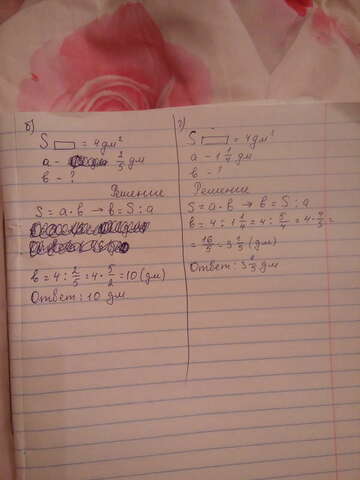 б)
S ▭ = 4 дм²
a - 2/5 дм
b - ?
Решение
S = a · b → b = S : a
b = 4 : 2/5 = 4 · 5/2 = 10 (дм)
Ответ: 10 дм
г)
S ▭ = 4 дм²
a - 1 1/4 дм
b - ?
Решение
S = a · b → b = S : a
b = 4 : 1 1/4 = 4 : 5/4 = 4 · 4/5 =
= 16/5 = 3 1/5 (дм)
Ответ: 3 1/5 дм